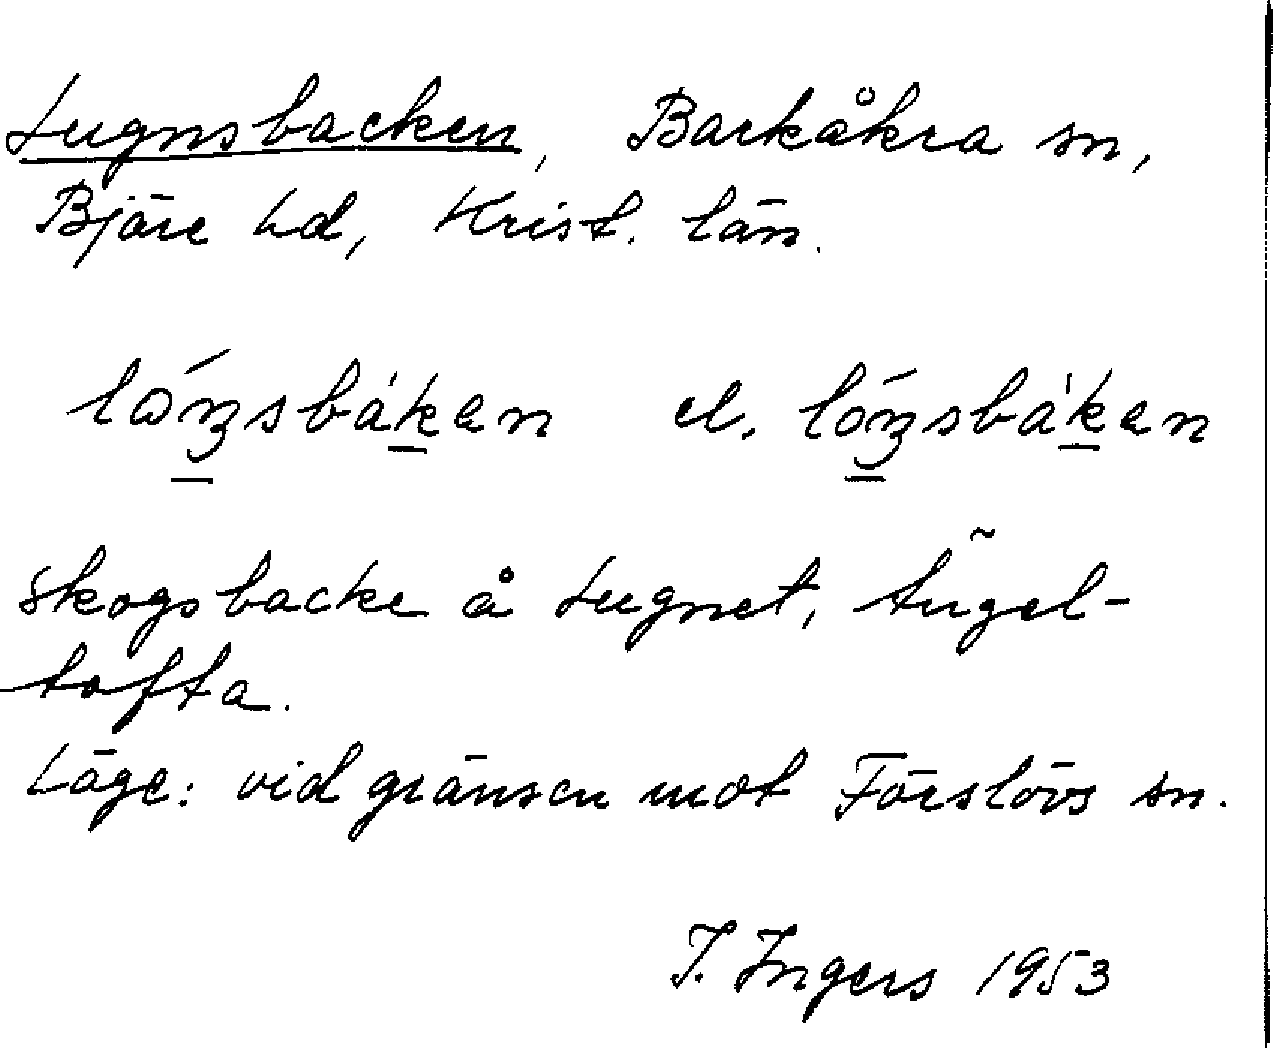 Lugnsbacken, Barkåkra sn,
Bjäre hd, Krist. län.
lώŋsbáken el. lóŋsbáken
Skogsbacke å Lugnet, Ängel-
tofta.
Läge: vid gränsen mot Förslövs sn.
I. Ingers 1953